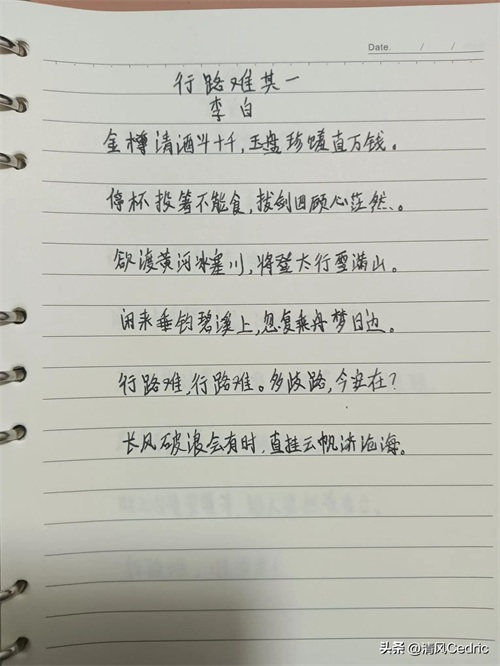 Date. / /
行路难其一
李白
金樽清酒斗十千,玉盘珍馐直万钱。
停杯投箸不能食,拔剑四顾心茫然、。
欲渡黄河冰塞川,将登太行雪满山。
闲来垂钓碧溪上,忽复乘舟梦日边。
行路难,行路难。多歧路,今安在?
长风破浪会有时,直挂云帆济沧海。
头条 @清风Cedric